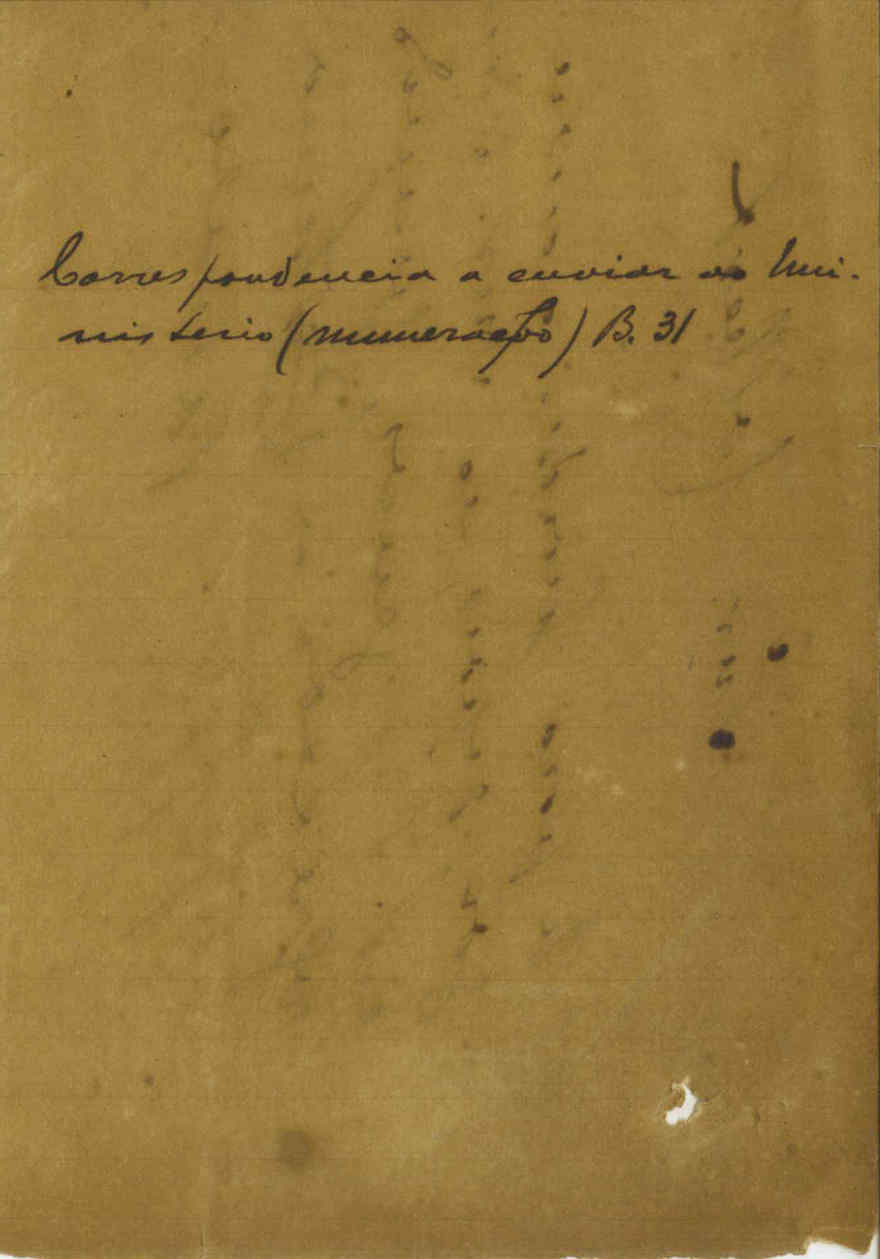 Correspondencia a enviar ao Mi-
nisterio (numeração) B. 31